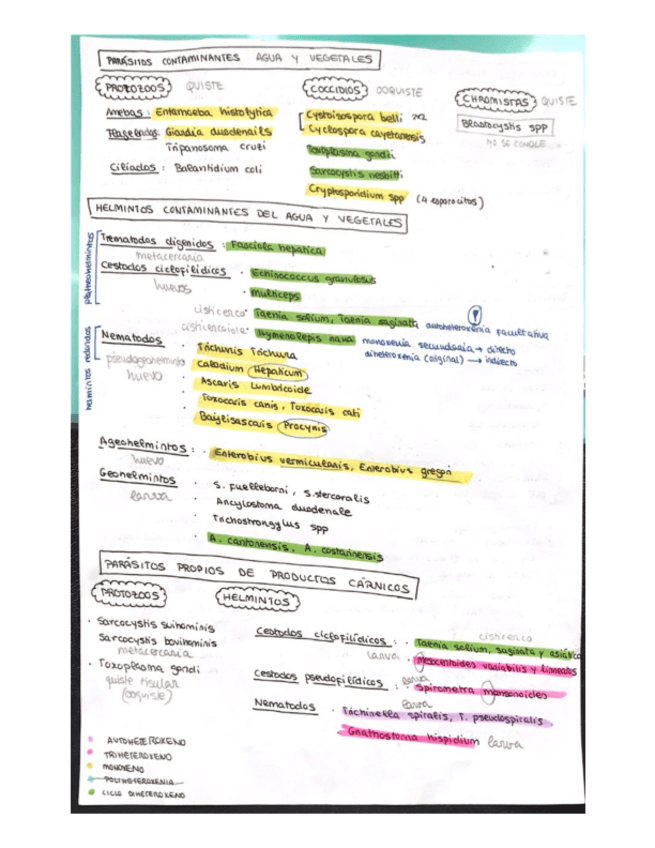 PARÁSITOS CONTAMINANTES AGUA Y VEGETALES
PROTOZOOS QUISTE
COCCIDIOS OOQUISTE
CHROMISTAS QUISTE
Amebas: Entamoeba histolytica
Flagelados: Giardia duodenalis
Tripanosoma cruzi
Ciliados: Balantidium coli
Cystoisospora belli
Cyclospora cayetanensis
Toxoplasma gondii
Sarcocystis nesbitti
Cryptosporidium spp (4 esporocitos)
Blastocystis spp
NO SE CONOCE
HELMINTOS CONTAMINANTES DEL AGUA Y VEGETALES
platelhelmintos
Trematodos digénidos: Fasciola hepatica
metacercaria
Cestodos ciclofilídicos · Echinococcus granulosus
huevos · multiceps
cisticerco · Taenia solium, Taenia saginata autoheteroxenia facultativa
cisticercoide · Hymenolepis nana monoxenia secundaria → directo
diheteroxenia (original) → indirecto
helmintos redondos
Nematodos · Trichuris Trichura
pseudogeohelminto · Calodium Hepaticum
huevo · Ascaris Lumbricoide
· Toxocaris canis, Toxocaris cati
· Baylisascaris Procynis
Ageohelmintos: · Enterobius vermicularis, Enterobius gregori
huevo
Geohelmintos · S. fuelleborni, S. stercoralis
larva · Ancylostoma duodenale
· Trichostrongylus spp
· A. cantonensis, A. costaricensis
PARÁSITOS PROPIOS DE PRODUCTOS CÁRNICOS
PROTOZOOS
HELMINTOS
· Sarcocystis suihominis
Sarcocystis bovihominis
metacercaria
· Toxoplasma gondi
quiste tisular
(ooquiste)
cisticerco
Cestodos ciclofilídicos: · Taenia solium, saginata y asiática
larva · Mesocentoides variabilis y lineatus
Cestodos pseudofilídicos: larva · Spirometra mansonoides
larva
Nematodos · Trichinella spiralis, T. pseudospiralis
· Gnathostoma hispidium larva
AUTOHETEROXENO
TRIHETEROXENO
MONOXENO
POLIHETEROXENIA
CICLO DIHETEROXENO